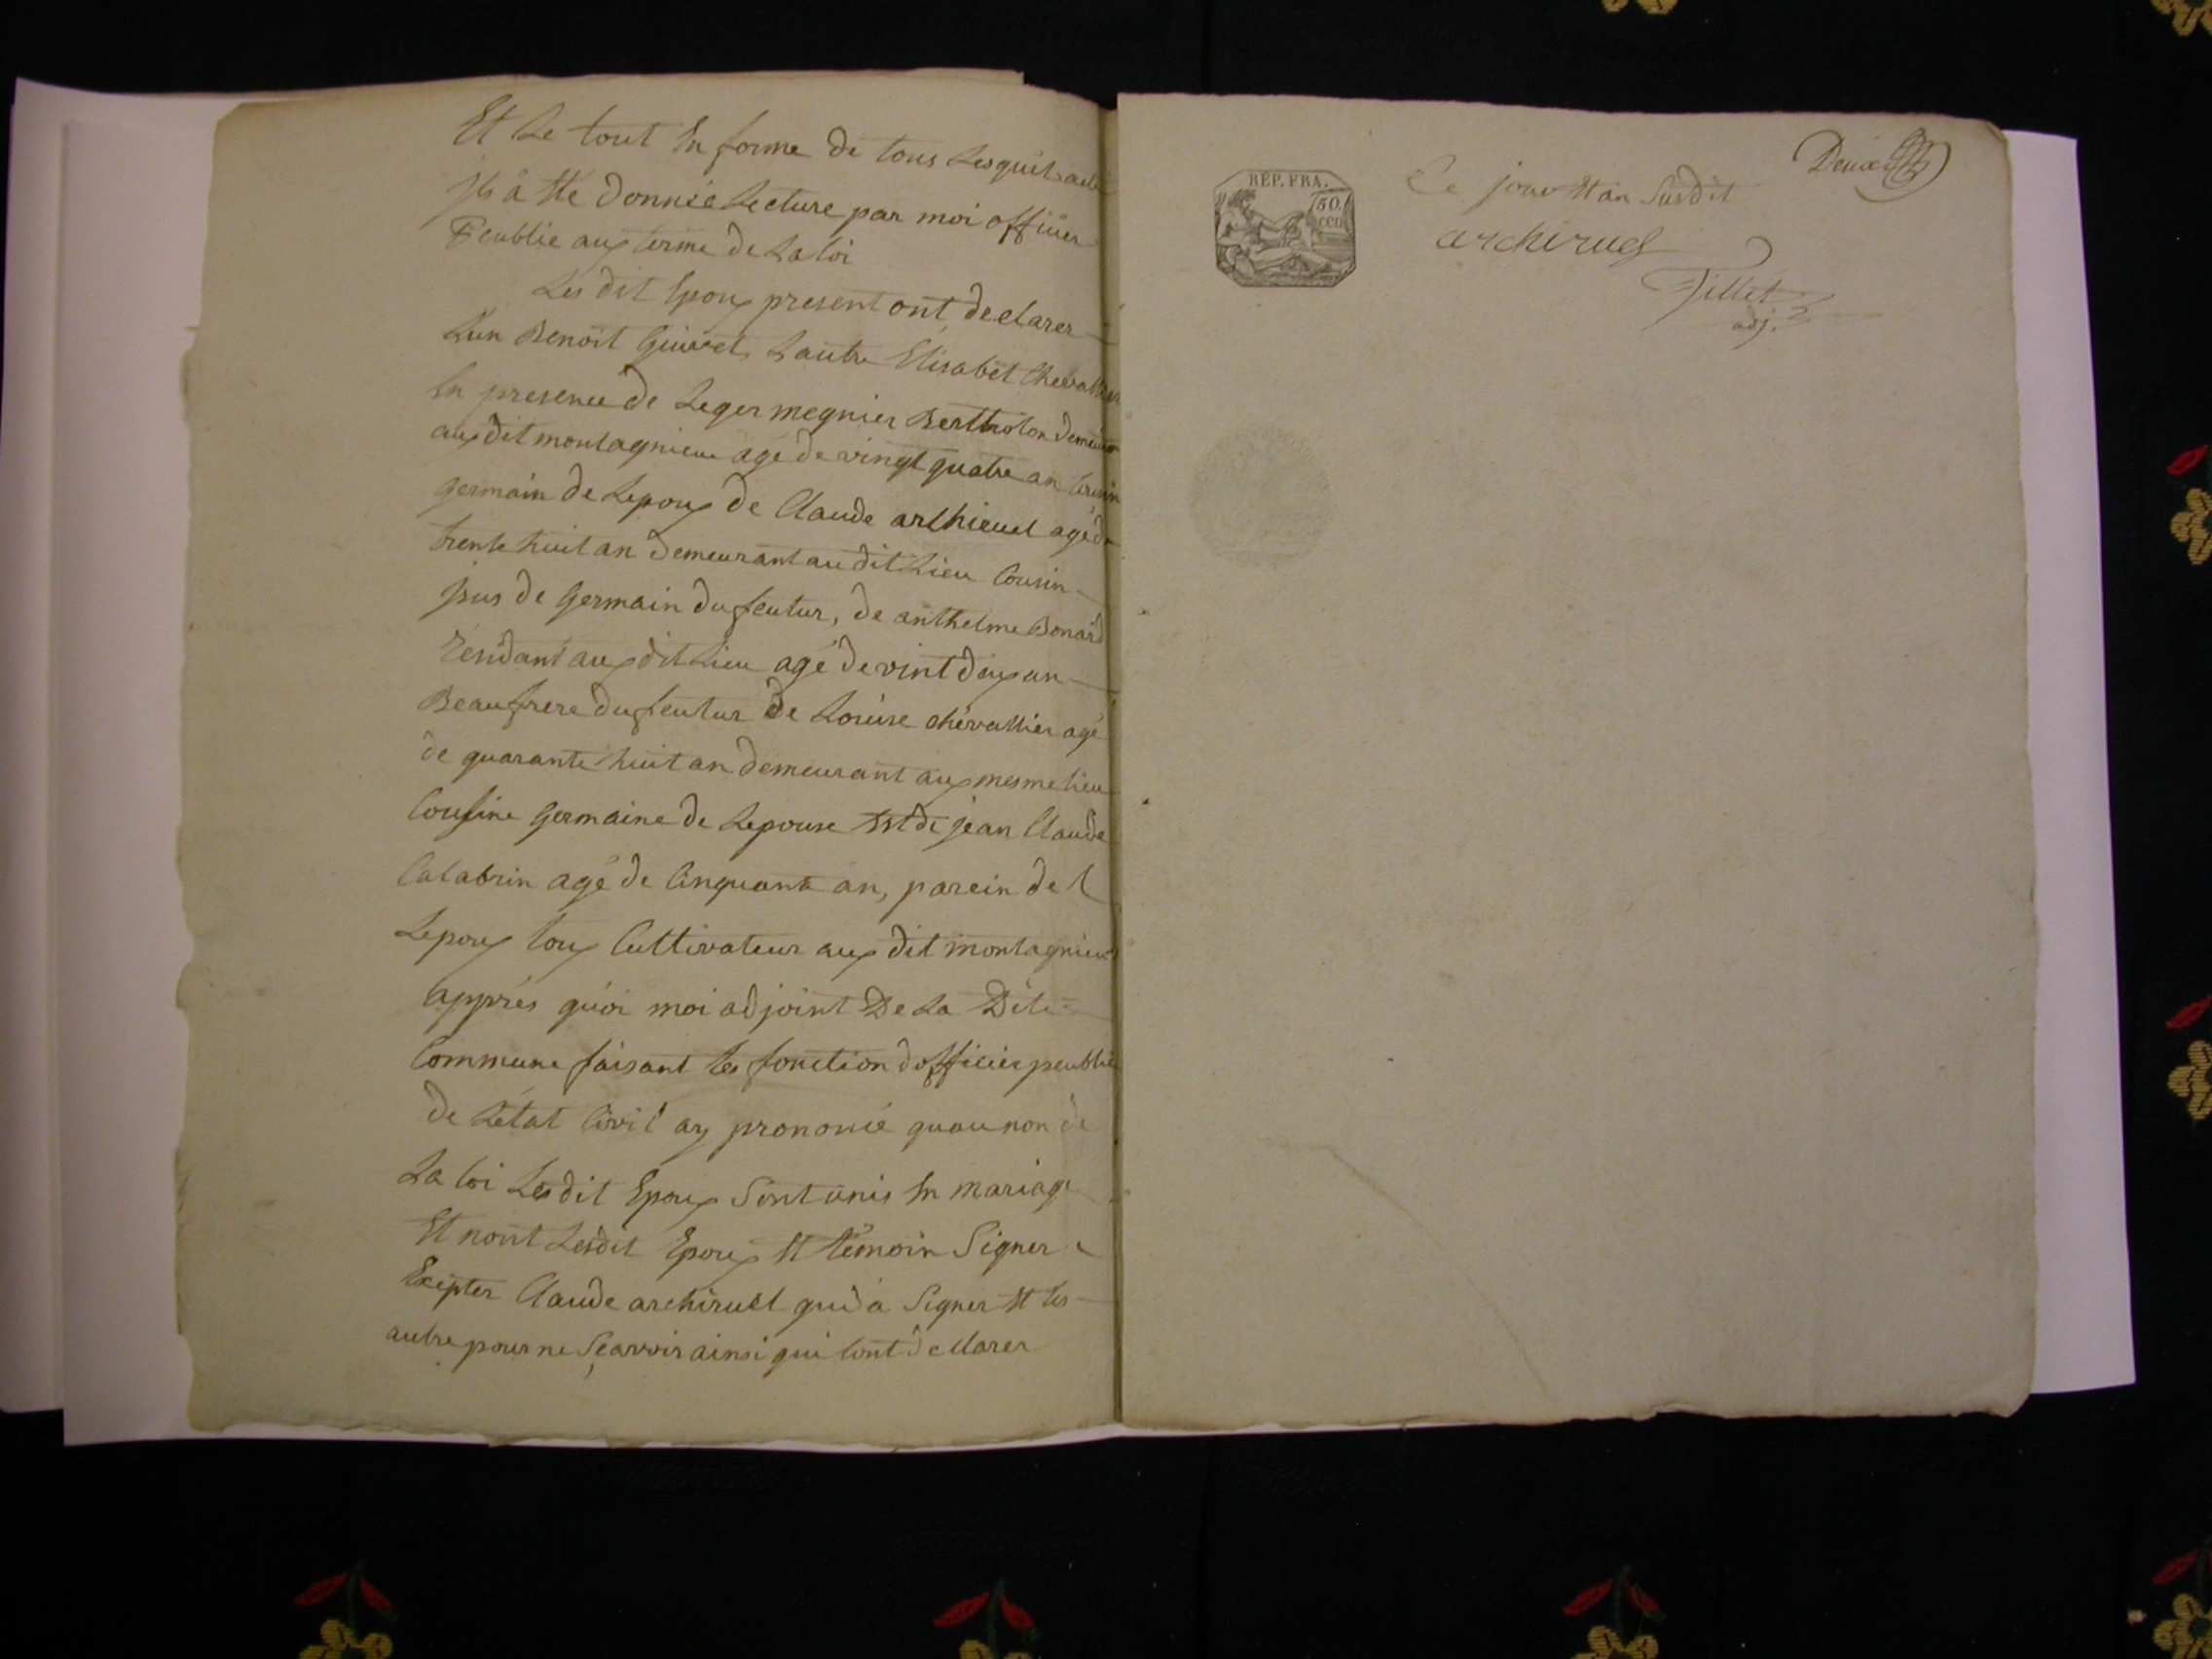 Et Le tout En forme de tous Lesquels acte
Jls à Ete donnée Lecture par moi officier
Peublie aux terme de La loi
Les dit Epoux present ont declarer
Lun Benoit Guivet Lautre Elisabet Chevallier
En presence de Leger megnier Bertholon demeurant
aux dit montagnieu agé de vingt quatre an Cousin
germain de Lepoux de Claude archiruel agé de
trente huit an demeurant au dit Lieu Cousin
jsus de Germain du feutur, de anthelme Bonard
résidant aux dit Lieu agé de vint deux an
Beaufrere du feutur de Louise chevallier agé
de quarante huit an demeurant aux mesme lieu
Cousine Germaine de Lepouse Et de jean Claude
Calabrin agé de Cinquante an, parein de
Lepoux toux Cultivateur aux dit montagnieu
Apprés quoi moi adjoint De La Dite
Commune faisant les fonction dofficier peublie
de Létat Civil ay prononcé quau non de
La loi Les dit Epoux Sont unis En mariage
Et nont Lesdit Epoux Et témoin Signer
Exepter Claude archiruel qui à Signer Et les
autre pour ne Sçavoir ainsi qui lont declarer
Deux
RÉP. FRA.
50
cen
Ce jour Et an Susdit
archiruel
Tillet
adj.